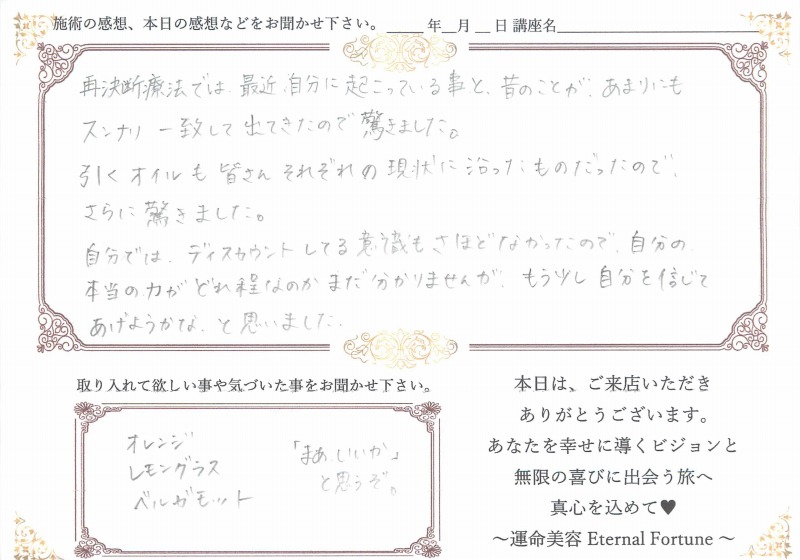 施術の感想、本日の感想などをお聞かせ下さい。 ＿＿＿年＿月＿日 講座名＿＿＿＿＿＿＿＿＿
再決断療法では、最近、自分に起こっている事と、昔のことが、あまりにも
スンナリ 一致して出てきたので驚きました。
引くオイルも皆さんそれぞれの現状に沿ったものだったので、
さらに驚きました。
自分では、ディスカウントしてる意識もさほどなかったので、自分の
本当の力がどれ程なのかまだ分かりませんが、もう少し自分を信じて
あげようかな、と思いました。
取り入れて欲しい事や気づいた事をお聞かせ下さい。
オレンジ
レモングラス
ベルガモット
「まぁ、いいか」
と思うぞ。
本日は、ご来店いただき
ありがとうございます。
あなたを幸せに導くビジョンと
無限の喜びに出会う旅へ
真心を込めて♥
～運命美容 Eternal Fortune ～